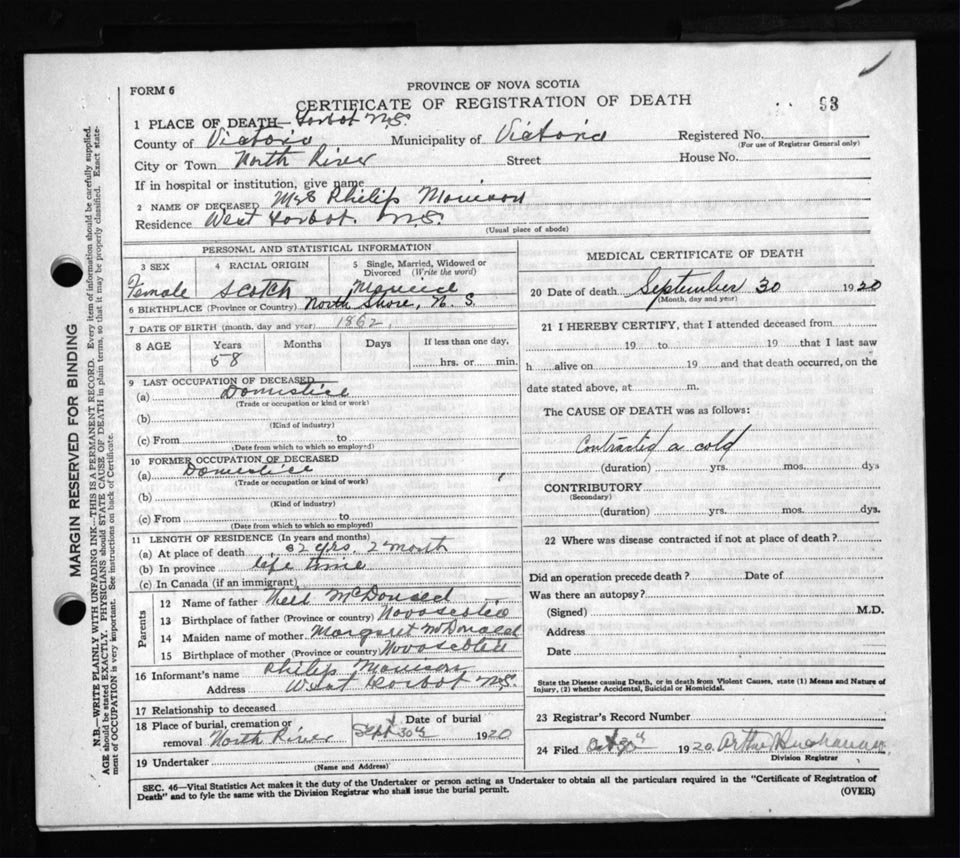 FORM 6
PROVINCE OF NOVA SCOTIA
CERTIFICATE OF REGISTRATION OF DEATH
93
1 PLACE OF DEATH— N.S.
County of Victoria Municipality of Victoria Registered No.
(For use of Registrar General only)
City or Town North River Street House No.
If in hospital or institution, give name
2 NAME OF DECEASED Mrs Philip Morrison
Residence West N.S.
(Usual place of abode)
PERSONAL AND STATISTICAL INFORMATION
3 SEX
Female
4 RACIAL ORIGIN
Scotch
5 Single, Married, Widowed or Divorced (Write the word)
6 BIRTHPLACE (Province or Country) North Shore, N. S.
7 DATE OF BIRTH (month, day and year) 1862
8 AGE Years Months Days If less than one day,
58 hrs. or min.
9 LAST OCCUPATION OF DECEASED
(a) Domestice
(Trade or occupation or kind or work)
(b)
(Kind of industry)
(c) From to
(Date from which to which so employed)
10 FORMER OCCUPATION OF DECEASED
(a) Domestice
(Trade or occupation or kind of work)
(b)
(Kind of industry)
(c) From to
(Date from which to which so employed)
11 LENGTH OF RESIDENCE (In years and months)
(a) At place of death 32 yrs, 2 month
(b) In province life time
(c) In Canada (if an immigrant)
Parents
12 Name of father Neil McDonald
13 Birthplace of father (Province or country) Novascotia
14 Maiden name of mother Margaret McDonald
15 Birthplace of mother (Province or country) Novascotia
16 Informant's name Philip Morrison
Address West N.S.
17 Relationship to deceased
18 Place of burial, cremation or removal North River
Date of burial
Sept 30th 1920
19 Undertaker
(Name and Address)
MEDICAL CERTIFICATE OF DEATH
20 Date of death September 30 1920
(Month, day and year)
21 I HEREBY CERTIFY, that I attended deceased from
19 to 19 that I last saw
h alive on 19 and that death occurred, on the
date stated above, at m.
The CAUSE OF DEATH was as follows:
Contracted a cold
(duration) yrs. mos. dys
CONTRIBUTORY
(Secondary)
(duration) yrs. mos. dys.
22 Where was disease contracted if not at place of death?
Did an operation precede death? Date of
Was there an autopsy?
(Signed) M.D.
Address
Date
State the Disease causing Death, or in death from Violent Causes, state (1) Means and Nature of
Injury, (2) whether Accidental, Suicidal or Homicidal.
23 Registrar's Record Number
24 Filed Oct 1920 Arthur Buchanan
Division Registrar
SEC. 46—Vital Statistics Act makes it the duty of the Undertaker or person acting as Undertaker to obtain all the particulars required in the "Certificate of Registration of
Death" and to fyle the same with the Division Registrar who shall issue the burial permit.
(OVER)
MARGIN RESERVED FOR BINDING
N.B.—WRITE PLAINLY WITH UNFADING INK—THIS IS A PERMANENT RECORD. Every item of information should be carefully supplied.
AGE should be stated EXACTLY. PHYSICIANS should STATE CAUSE OF DEATH in plain terms, so that it may be properly classified. Exact state-
ment of OCCUPATION is very important. See instructions on back of Certificate.